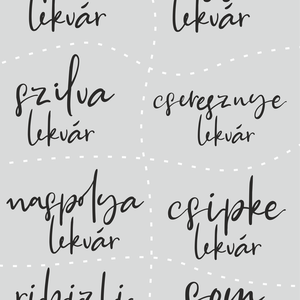 lekvár lekvár
szilva
lekvár
cseresznye
lekvár
naspolya
lekvár
csipke
lekvár
ribizli
som